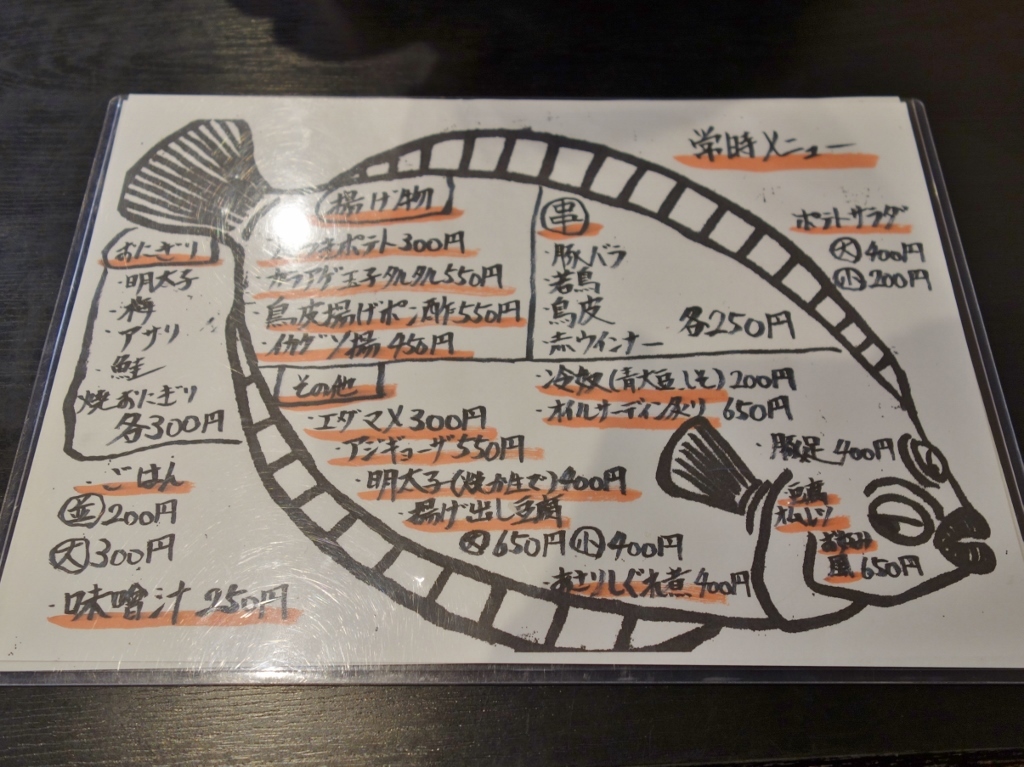 常時メニュー
ポテトサラダ
大 400円
小 200円
揚げ物
ポテト300円
カラアゲ玉子タルタル550円
鳥皮揚げポン酢550円
・イカゲソ揚450円
串
・豚バラ
・若鳥
・鳥皮
・赤ウインナー
各250円
おにぎり
・明太子
・梅
・アサリ
・鮭
焼おにぎり
各300円
・ごはん
並200円
大300円
・味噌汁 250円
その他
・エダマメ300円
・アジギョーザ550円
・明太子(焼か生で)400円
・揚げ出し豆腐
大650円 小400円
・あさりしぐれ煮400円
・冷奴(青大豆しそ)200円
・オイルサーディン炙り 650円
・豚足 400円
・豆腐
風 650円